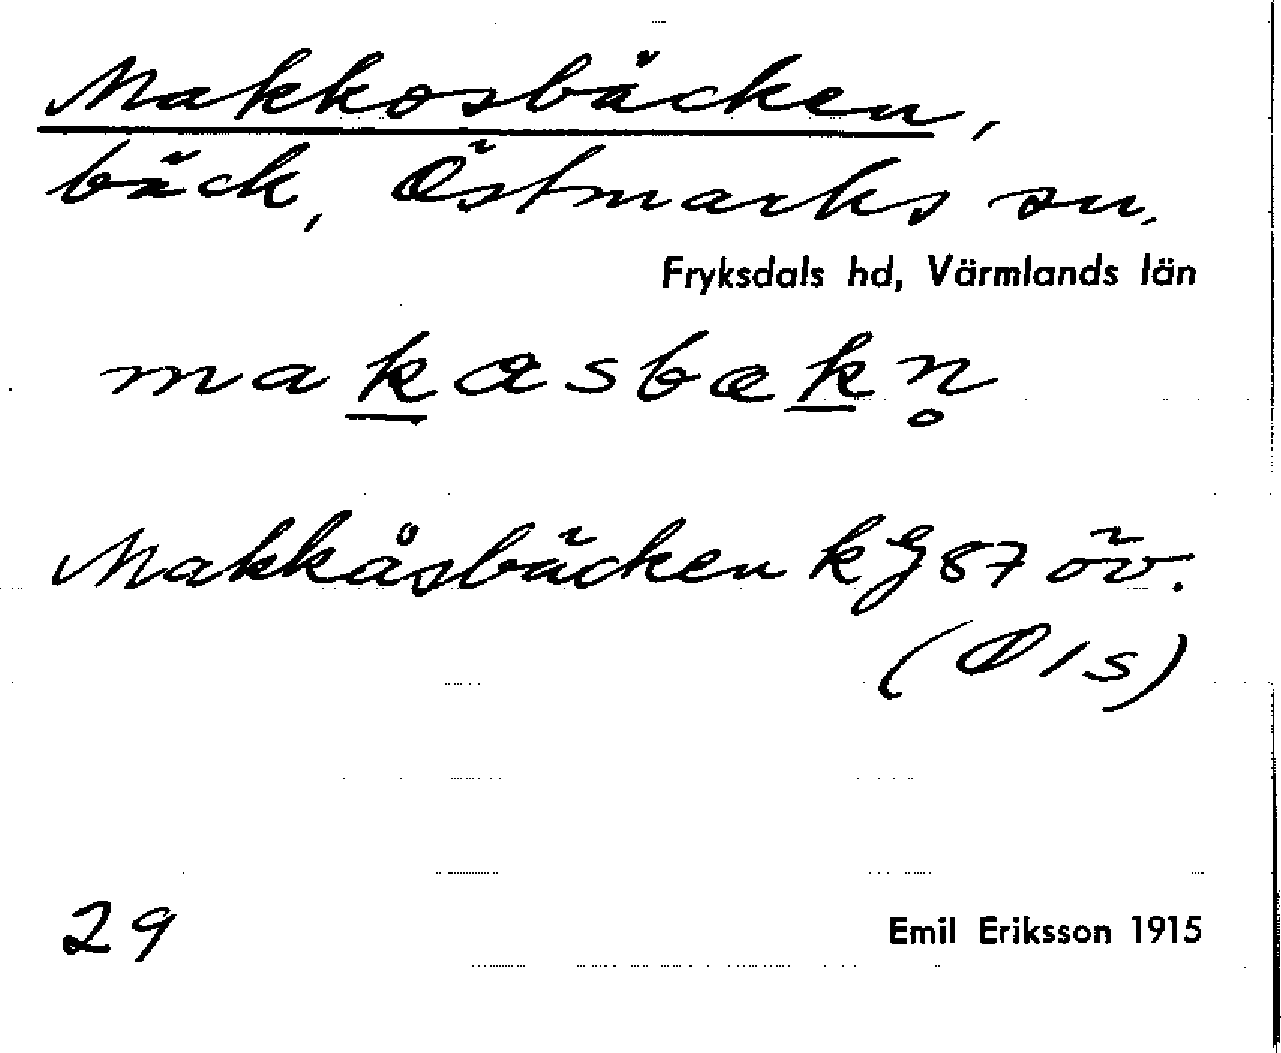 Makkosbäcken,
bäck, Östmarks sn.
Fryksdals hd, Värmlands län
makasbækn̥
Makkåsbäcken kg 87 öv.
(Ø1s)
29
Emil Eriksson 1915